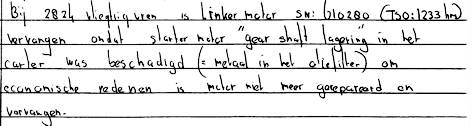 Bij 2824 vlieguren is Linker motor SN: 010280 (TSO: 1233 hrs)
vervangen omdat starter motor "gear shaft lagering" in het
carter was beschadigd (= metaal in het oliefilter) om
economische redenen is motor niet meer gerepareerd en
vervangen.